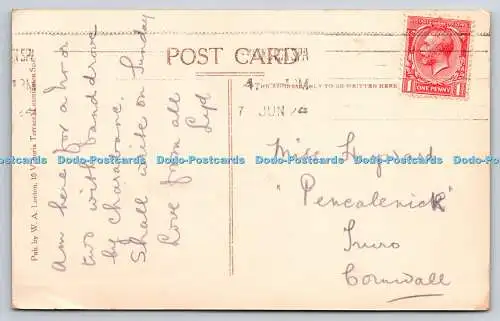 POST CARD
THE ADDRESS ONLY TO BE WRITTEN HERE
7 JUN
ONE PENNY
Am here for a hr or
two with F and drove
by Charabanc.
Shall write on Sunday
Love from all
Lyd
Miss
"Pencalenick"
Truro
Cornwall
Pub. by W. A. Lenton, 10 Victoria Terrace,
Dodo-Postcards Dodo-Postcards Dodo-Postcards Dodo-Postcards Dodo-Postcards